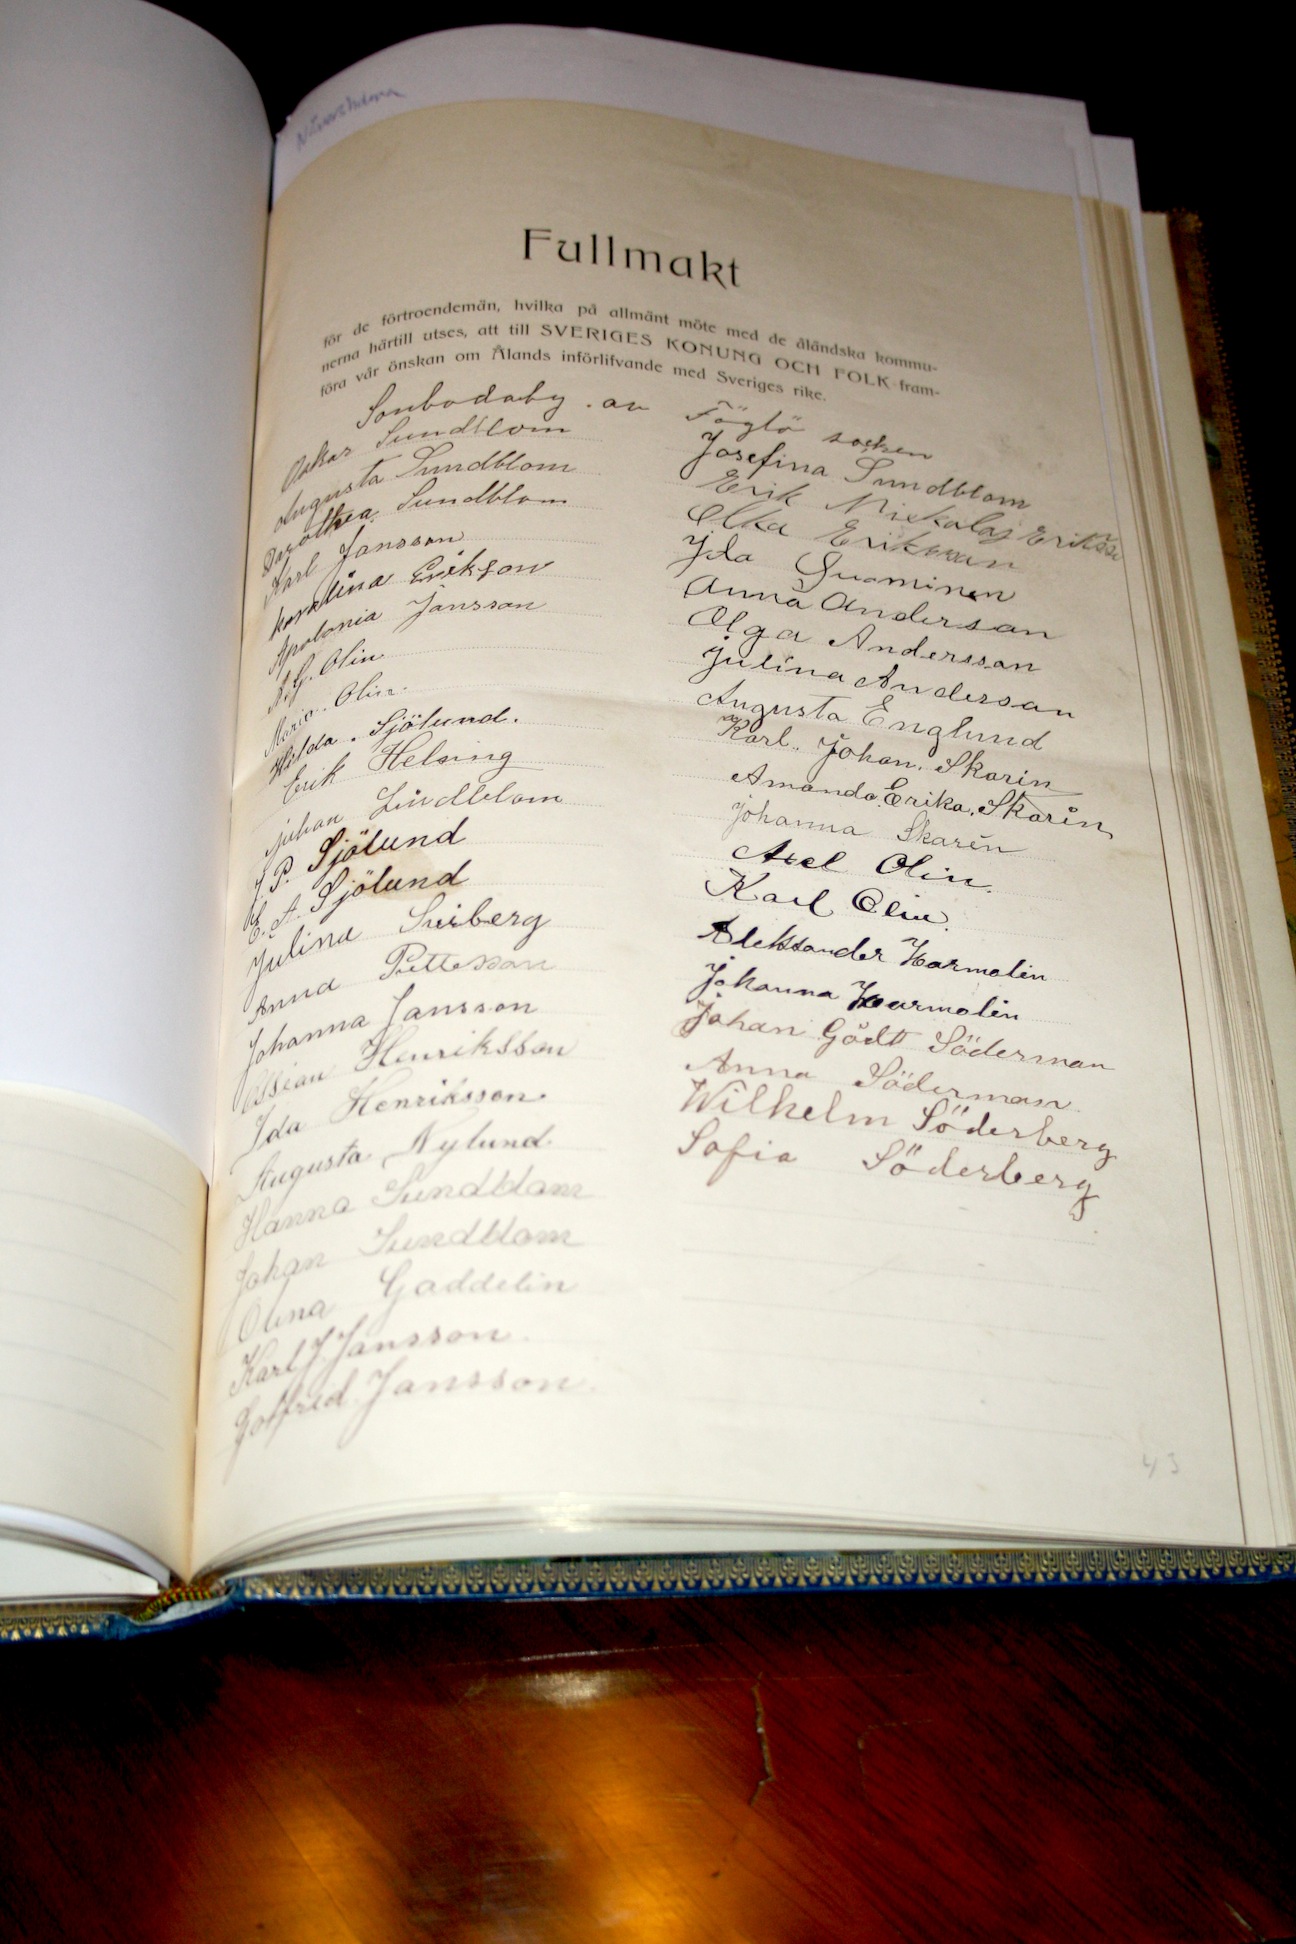 Fullmakt
för de förtroendemän, hvilka på allmänt möte med de åländska kommu-
nerna härtill utses, att till SVERIGES KONUNG OCH FOLK fram-
föra vår önskan om Ålands införlifvande med Sveriges rike.
Sonbodaby av Föglö socken
Oskar Sundblom
Augusta Sundblom
Dorothea Sundblom
Karl Jansson
Karolina Erikson
Apolonia Jansson
A.G. Olin
Maria Olin.
Hilda. Sjölund.
Erik Helsing
Johan Lindblom
J P. Sjölund
E. A. Sjölund
Julina
Anna Pettersson
Johanna Jansson
Ossian Henriksson
Ida Henriksson
Augusta Nylund
Hanna Sundblom
Johan Sundblom
Olina Gaddelin
Karl J Jansson
Gotfrid Jansson
Josefina Sundblom
Erik Nickolaj Eriksso
Erikson
Ida Suominen
Anna Anderson
Olga Andersson
Julina Anderson
Augusta Englund
Karl. Johan. Skarin
Amanda. Erika. Skarin
Johanna Skarén
Axel Olin.
Karl Olin.
Aleksander Karmolin
Johanna Karmolin
Johan Gödt Söderman
Anna Söderman
Wilhelm Söderberg
Sofia Söderberg
43